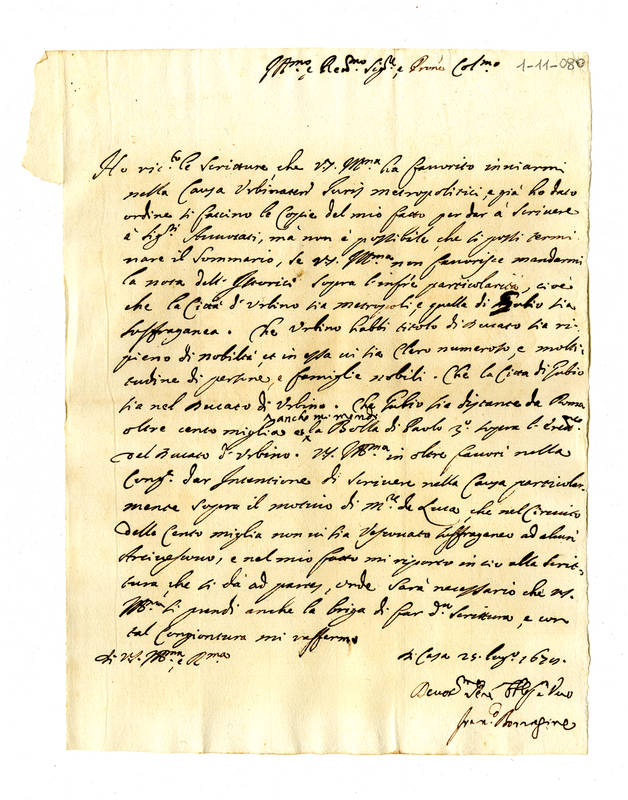 Ill.mo e Rev.mo Sig.re e Pron Col.mo 1-11-080
Ho ric.to le scritture, che V.S. Ill.ma ha favorito inviarmi
nella Causa Urbinaten Iuris metropolitici, e già ho dato
ordine si faccino le Copie del mio fatto per dar à scrivere
à Sig.ri Avvocati, mà non è possibile che si possi termi
nare il sommario, se V.S. Ill.ma non favorisce mandarmi
la nota dell' Istorici sopra l'infre particolarità, cioè
che la Città d' Urbino sia metropoli, e quella di Gubio sia
suffraganea. Che Urbino habbi titolo di Ducato sia ri-
pieno di nobiltà, et in essa vi sia Clero numeroso, e molti-
tudine di persone, e famiglie nobili. Che la Città di Gubio
sia nel Ducato di Urbino. Che Gubio sia distante da Roma
anche mi mandi
oltre cento miglia et la Bolla di Paolo 3.o sopra l'
del Ducato d' Urbino. V.S. Ill.ma in oltre favorì nella
Cong. dar Intentione di scrivere nella Causa particolar-
mente sopra il motivo di m.re de Luca, che nel Circuito
delle Cento miglia non vi sia Vescovato suffraganeo ad alcun
Arcivescovo, e nel mio fatto mi riporto in ciò alla scrit-
tura, che si dà ad partes, onde sarà necessario che V.S.
Ill.ma si prendi anche la briga di far d.a scrittura, e con
tal Congiontura mi raffermo
di V.S. Ill.ma e R.ma di Casa 25. lug.o
Devot.mo
Fran.o